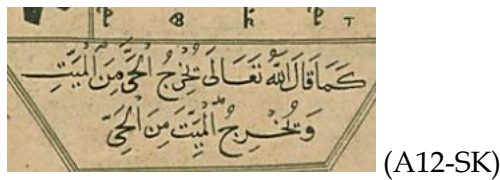 كَمَا قَالَ اللّٰهُ تَعَالَى يُخْرِجُ الْحَيَّ مِنَ الْمَيِّتِ
وَيُخْرِجُ الْمَيِّتَ مِنَ الْحَيِّ
(A12-SK)